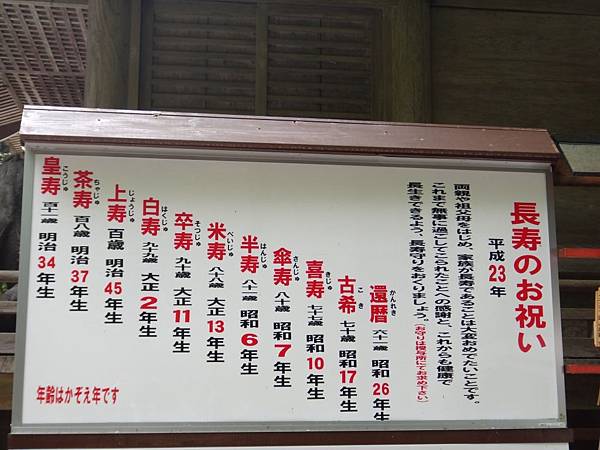 長寿のお祝い
平成23年
両親や祖父母をはじめ、家族が長寿であることは大変おめでたいことです。
これまで無事に過ごしてこられたことへの感謝と、これからも健康で
長生きできるよう、長寿守りをおくりましょう。(お守りは授与所にてお求め下さい)
還暦 かんれき 六十一歳 昭和26年生
古希 こき 七十歳 昭和17年生
喜寿 きじゅ 七十七歳 昭和10年生
傘寿 さんじゅ 八十歳 昭和7年生
半寿 はんじゅ 八十一歳 昭和6年生
米寿 べいじゅ 八十八歳 大正13年生
卒寿 そつじゅ 九十歳 大正11年生
白寿 はくじゅ 九十九歳 大正2年生
上寿 じょうじゅ 百歳 明治45年生
茶寿 ちゃじゅ 百八歳 明治37年生
皇寿 こうじゅ 百十一歳 明治34年生
年齢はかぞえ年です